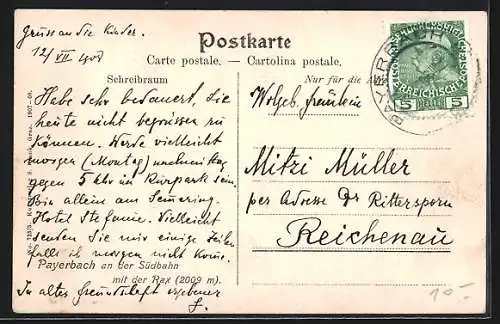 Gruss an die Kinder.
12/VII 1908
Postkarte
Carte postale. — Cartolina postale.
Schreibraum
Nur für die A
PAYERBACH
5 HELLER 5
Habe sehr bedauert, Sie
heute nicht begrüssen zu
können. Werde vielleicht
morgen (Montag) nachmittag
gegen 5 Uhr im Kurpark sein.
Bin allein am Semmering
Hotel Stefanie. Vielleicht
senden Sie mir einige Zeilen
falls ich morgen nicht komme.
Payerbach an der Südbahn
mit der Rax (2009 m).
In alter Freundschaft ergebener
Wolgeb. Fräulein
Mitzi Müller
per Adresse Dr Rittersporn
Reichenau
10.-